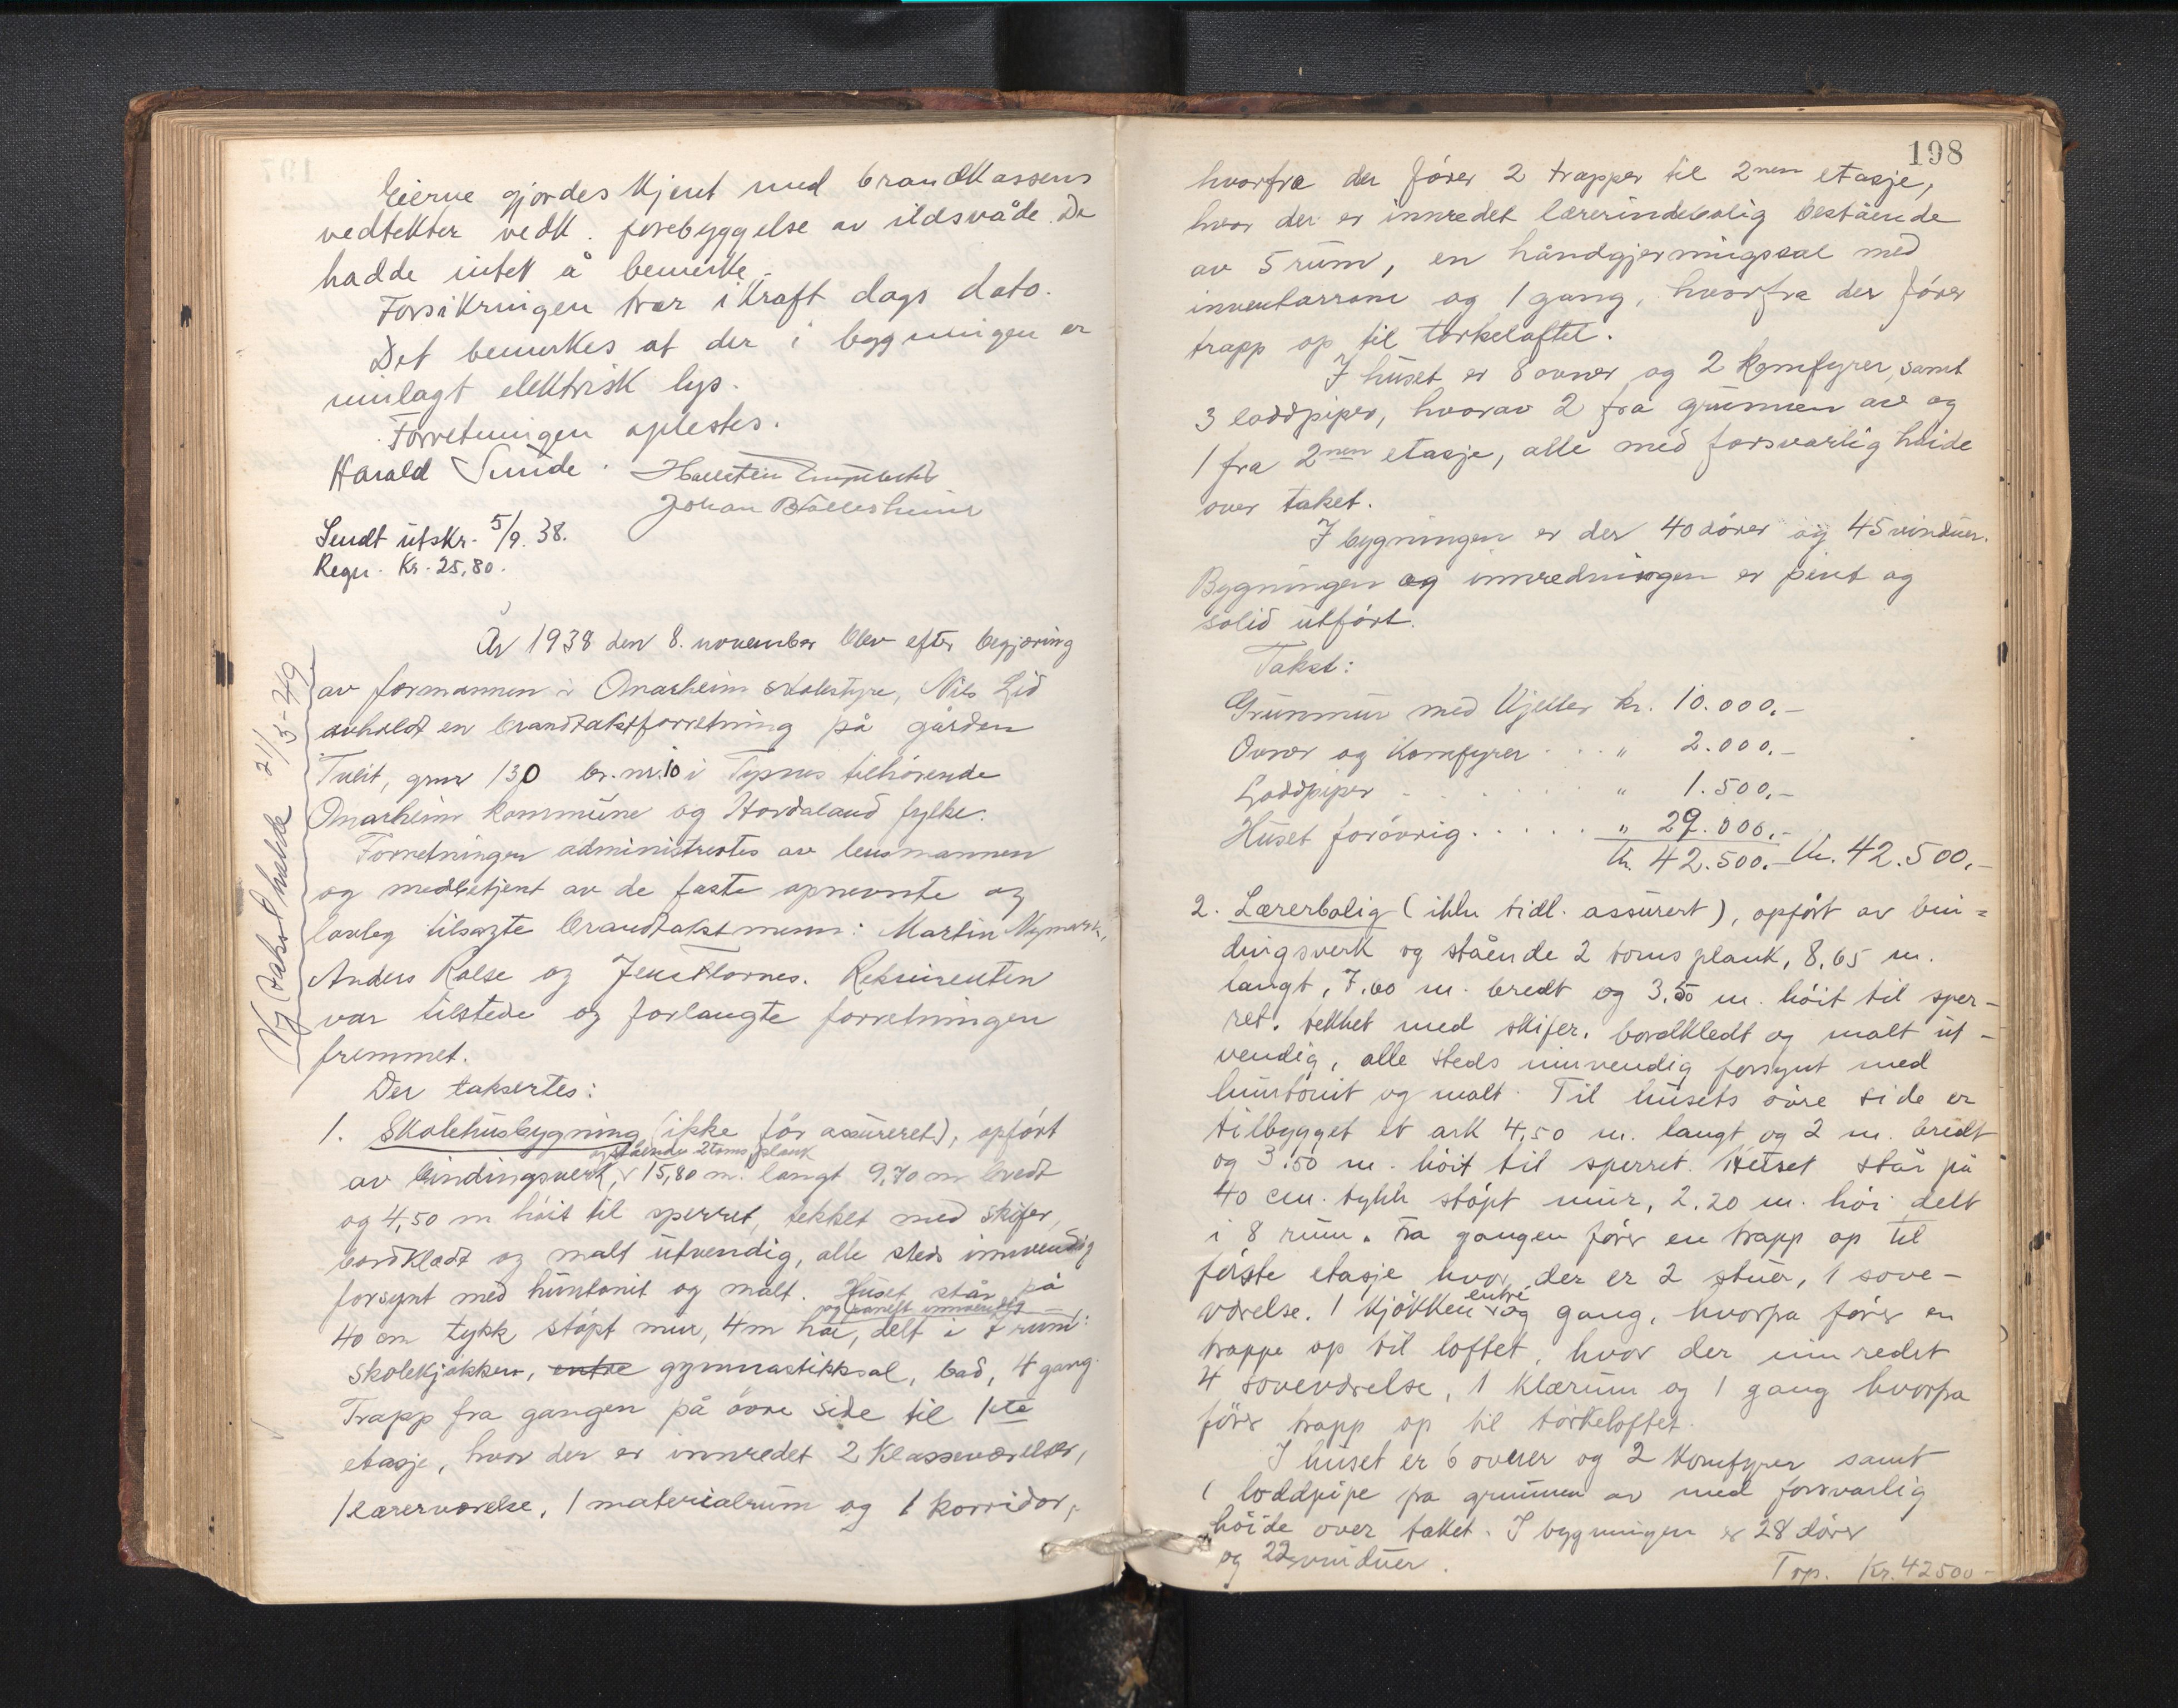 Eierne gjordes kjent med brandkassens
vedtekter vedk. forebyggelse av ildsvåde. De
hadde intet å bemerke.
Forsikringen trær i kraft dags dato.
Det bemerkes at der i bygningen er
innlagt elektrisk lys.
Forretningen oplestes.
Harald Sunde.
Johan
Sendt utskr. 5/9. 38.
Regn. Kr. 25,80.
År 1938 den 8. november blev efter begjæring
av formannen i Onarheim skolestyre, Nils Lid
avholdt en brandtakstforretning på gården
Tveit, gnr 130 br. nr. 10 i Tysnes tilhørende
Onarheim kommune og Hordaland fylke.
Forretningen administrertes av lensmannen
og medbetjent av de faste opnevnte og
lovleg tilsagte brandtakstmenn: Martin Nymark,
Anders Kalse og Jens Flornes. Rekvirenten
var tilstede og forlangte forretningen
fremmet.
Ny takst helde 21/5-49
Der taksertes:
1. Skolehusbygning (ikke før assureret), opført
og stående 2 toms plank
av bindingsverk, v 15,80 m. langt 9,70 m bredt
og 4,50 m høit til sperret, tekket med skifer,
bordklædt og malt utvendig, alle steds innvendig
forsynt med huntonit og malt. Huset står på
og panelt innvendig
40 cm tykk støpt mur, 4 m høi, delt i 7 rum:
Skolekjøkken, entre gymnastikksal, bad, 4 gang.
Trapp fra gangen på øvre side til 1ste
etasje, hvor der er innredet 2 klasseværelser,
1 lærerværelse, 1 materialrum og 1 korridor,
198
hvorfra der fører 2 trapper til 2nen etasje,
hvor der er innredet lærerindebolig bestående
av 5 rum, en håndgjerningssal med
inventarrom og 1 gang, hvorfra der fører
trapp op til tørkeloftet.
I huset er 8 ovner og 2 komfyrer, samt
3 loddpiper, hvorav 2 fra grunnen av og
1 fra 2nen etasje, alle med forsvarlig høide
over taket.
I bygningen er der 40 dører og 45 vinduer.
Bygningen og innredningen er pent og
solid utført.
Takst:
Grunnmur med kjeller kr. 10.000.-
Ovner og komfyrer . . . " 2.000.-
Loddpiper . . . . . . " 1.500.-
Huset forøvrig. . . . . " 29.000.-
Kr. 42.500.- Kr. 42.500.-
2. Lærerbolig (ikke tidl. assurert), opført av bin=
dingsverk og stående 2 toms plank, 8,65 m.
langt, 7.60 m. bredt og 3.50 m. høit til sper-
ret. tekket med skifer. bordkledt og malt ut-
vendig, alle steds innvendig forsynt med
huntonit og malt. Til husets øvre side er
tilbygget et ark 4,50 m. langt og 2 m. bredt
og 3.50 m. høit til sperret. Huset står på
40 cm. tykk støpt mur, 2.20 m. høi delt
i 8 rum. Fra gangen fører en trapp op til
første etasje hvor der er 2 stuer, 1 sove-
entré
værelse. 1 kjøkken v og gang, hvorfra fører en
trappe op til loftet, hvor der innredet
4 soveværelse, 1 klærum og 1 gang hvorfra
fører trapp op til tørkeloftet.
I huset er 6 ovner og 2 komfyrer samt
1 loddpipe fra grunnen av med forsvarlig
høide over taket. I bygningen er 28 dører
og 22 vinduer.
Trp. Kr. 42500-